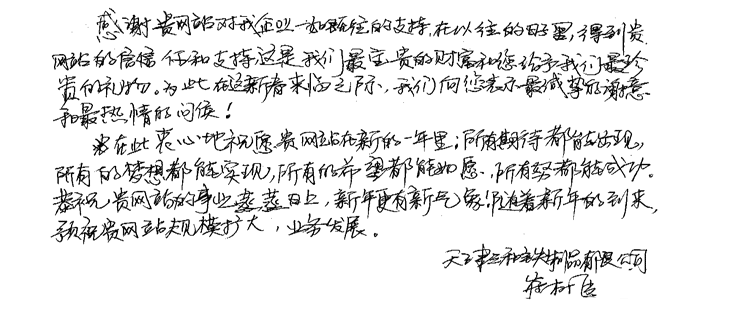 感谢贵网站对我企业一如既往的支持,在以往的日子里,得到贵
网站的信任和支持这是我们最宝贵的财富和您给予我们最珍
贵的礼物。为此在这新春来临之际,我们向您表示最诚挚的谢意
和最热情的问候!
在此衷心地祝愿贵网站在新的一年里;所有期待都能出现,
所有的梦想都能实现,所有的希望都能如愿,所有努都能成功。
恭祝贵网站的事业蒸蒸日上,新年更有新气象!随着新年的到来,
预祝贵网站规模扩大,业务发展。
天津三和铁制品有限公司